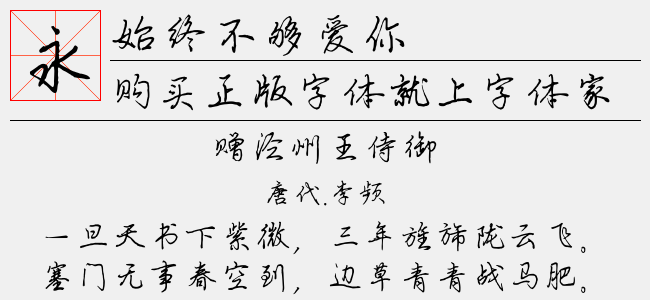 永
始终不够爱你
购买正版字体就上字体家
赠泾州王侍御
唐代.李频
一旦天书下紫微，三年旌旆陇云飞。
塞门无事春空到，边草青青战马肥。